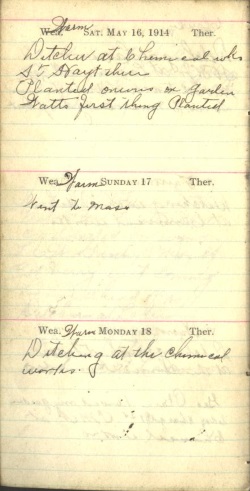 Warm
Wea. SAT. MAY 16, 1914 Ther.
Ditcher at Chemical wks
Planted onions in Garden
first thing Planted
Wea. Warm SUNDAY 17 Ther.
Went To Mass
Wea. Warm MONDAY 18 Ther.
Ditching at the chemical
works.